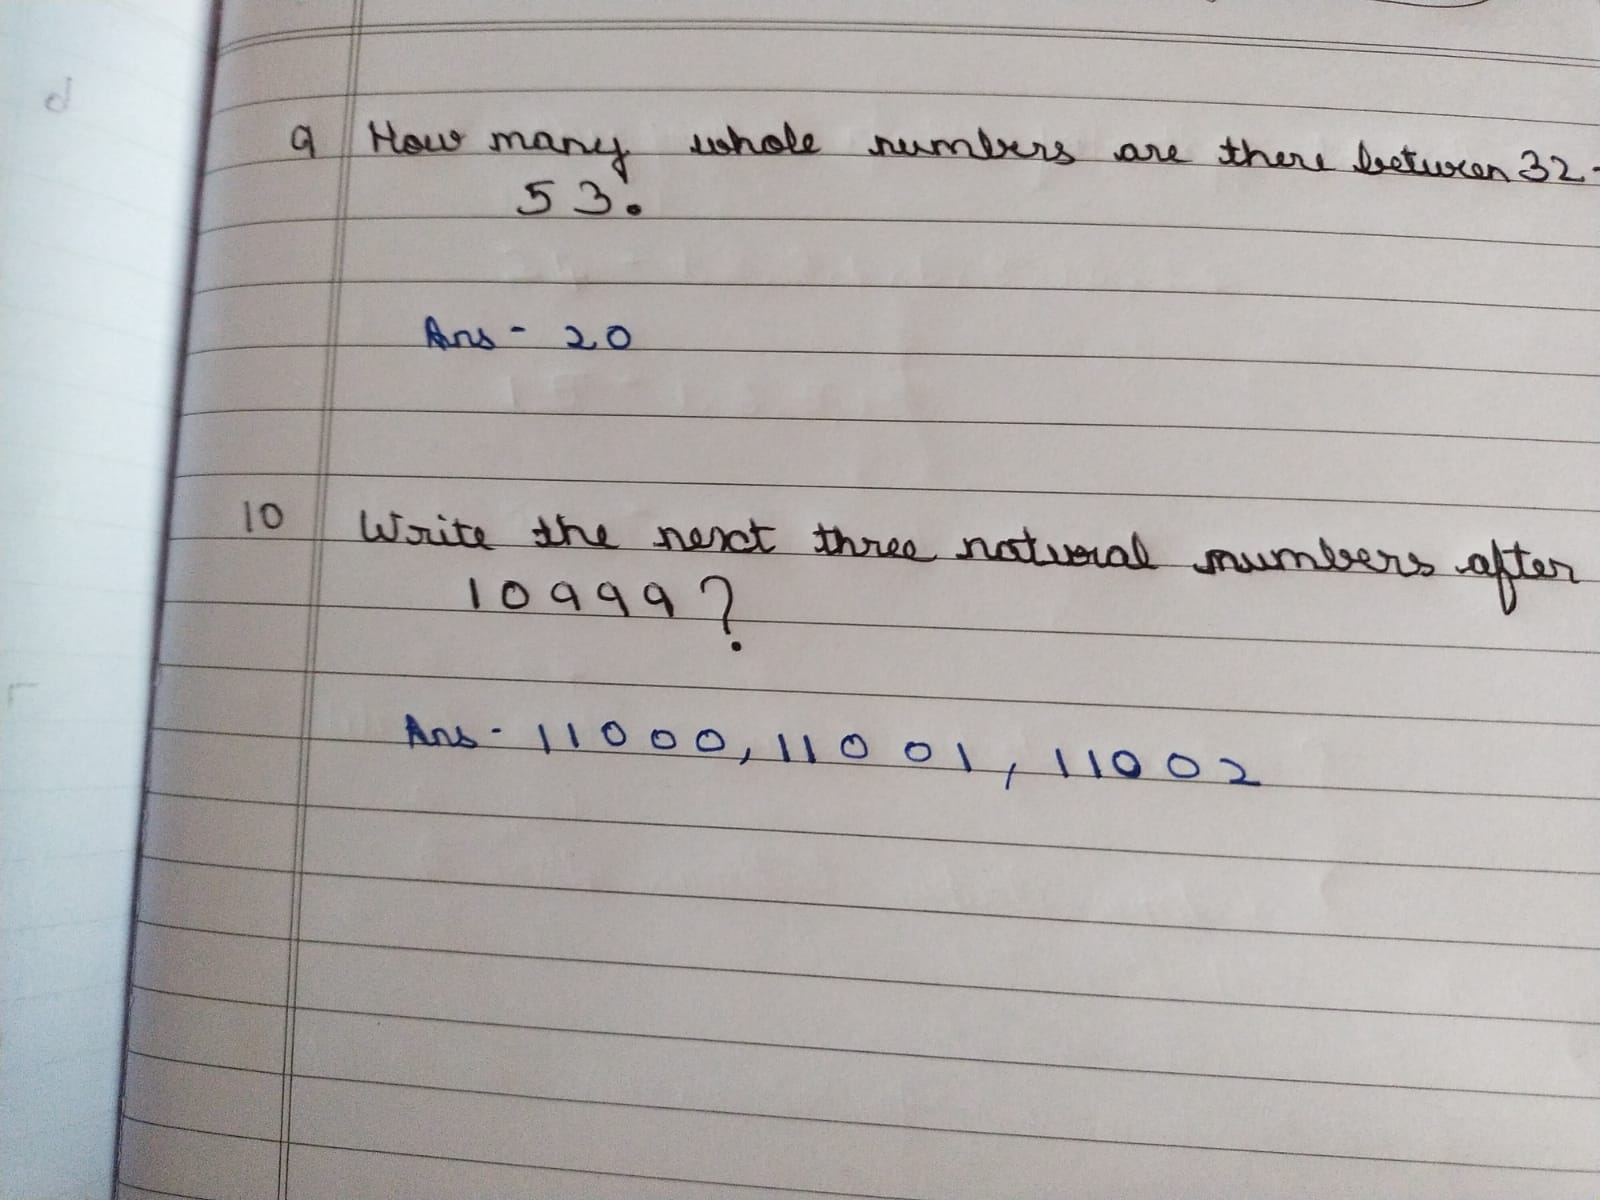 9 How many whole numbers are there between 32-
53.
Ans - 20
10 Write the next three natural numbers after
10999?
Ans - 11000, 11001, 11002